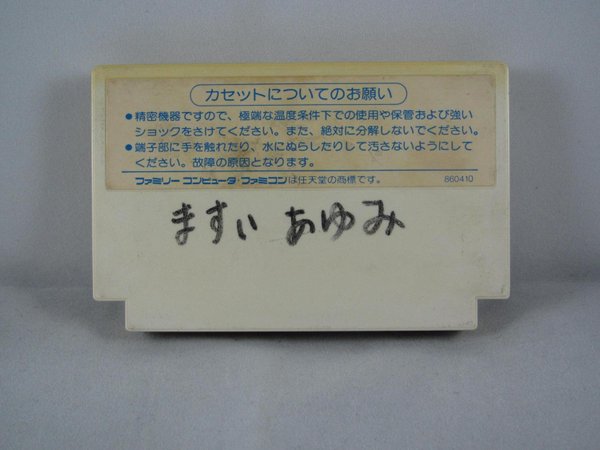 カセットについてのお願い
●精密機器ですので、極端な温度条件下での使用や保管および強い
ショックをさけてください。また、絶対に分解しないでください。
●端子部に手を触れたり、水にぬらしたりして汚さないようにして
ください。故障の原因となります。
ファミリーコンピュータ・ファミコンは任天堂の商標です。 860410
ますい あゆみ